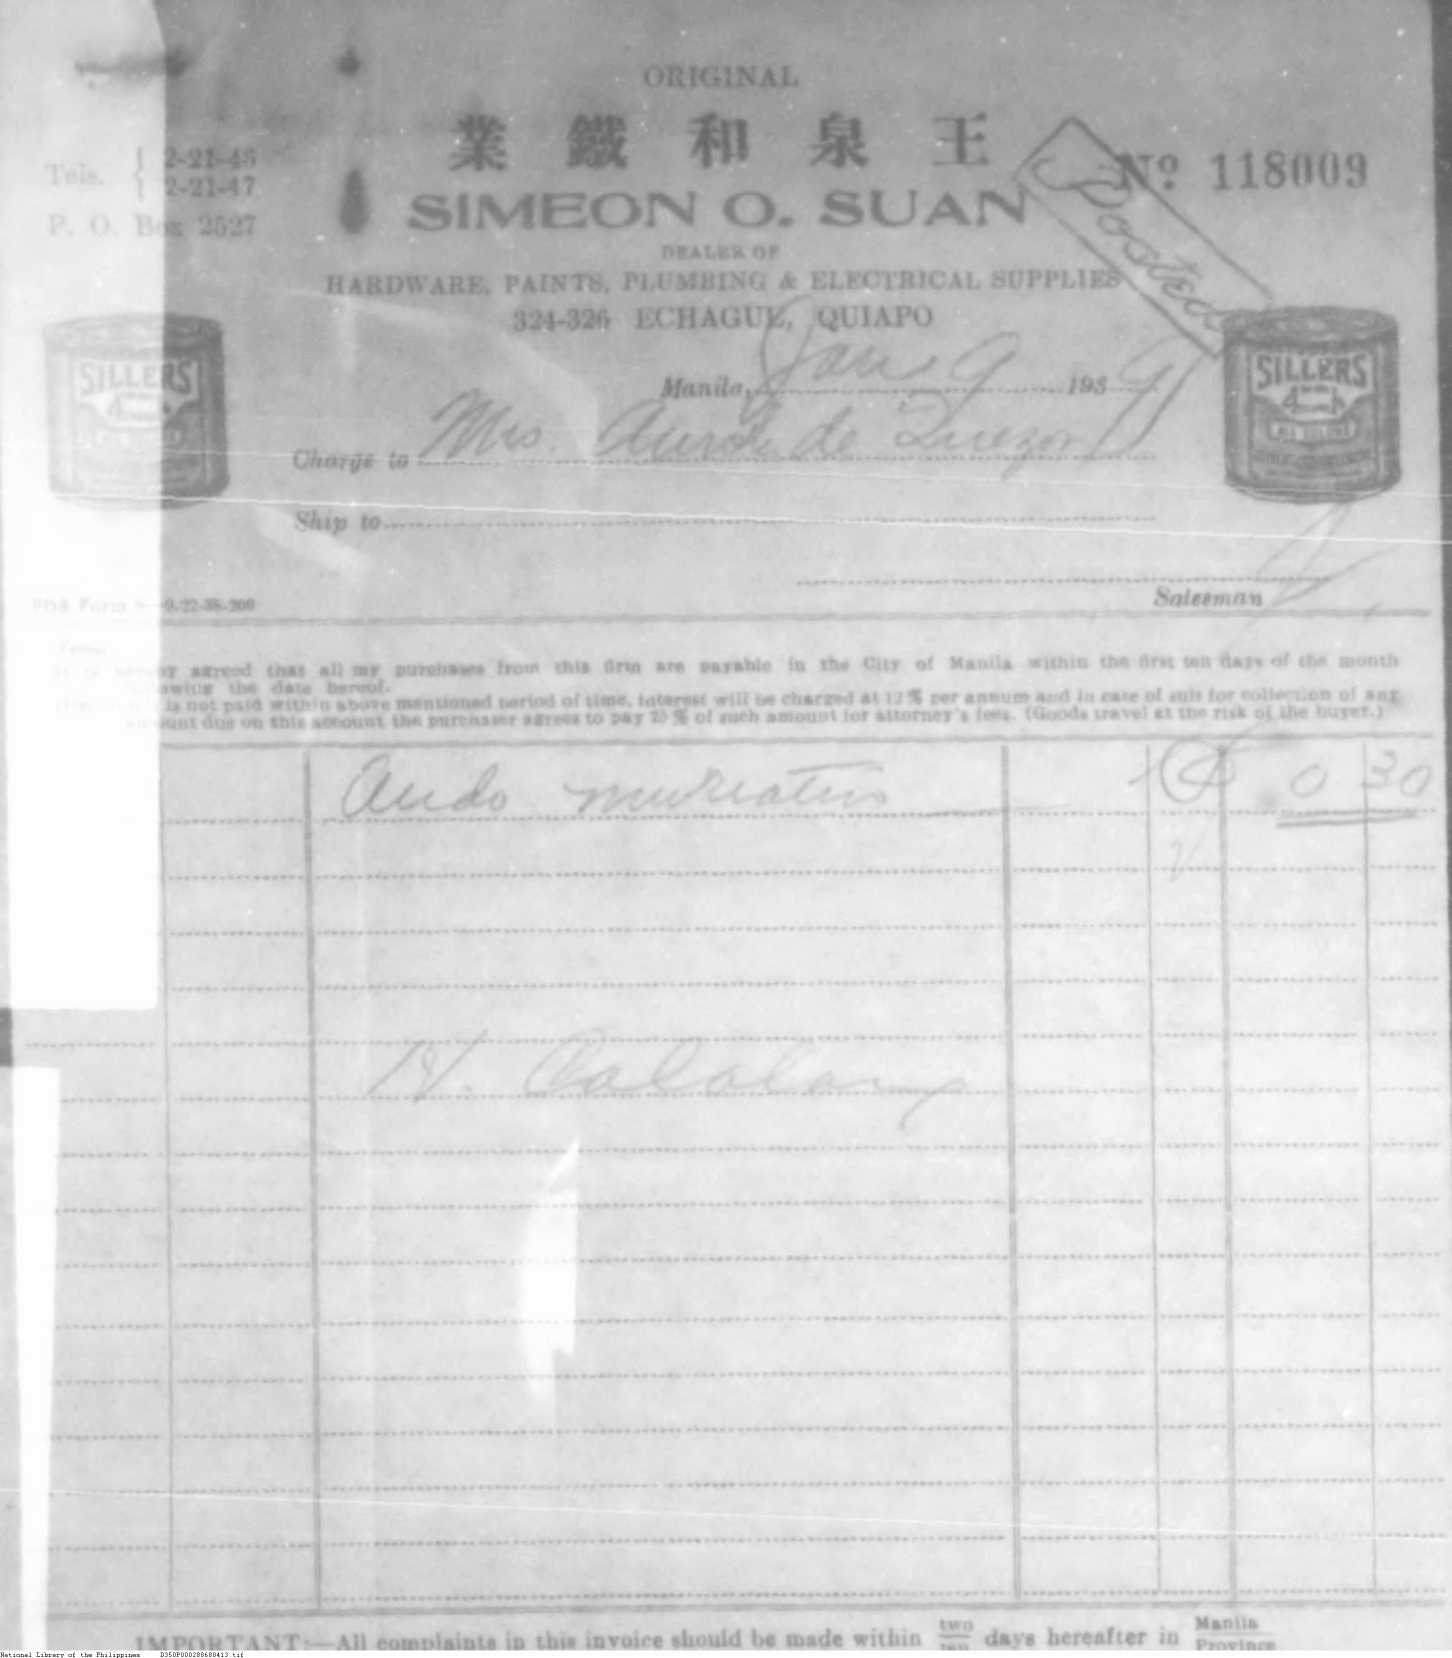 ORIGINAL
業鐵和泉王
Tels. { 2-21-46
{ 2-21-47
Nº 118009
SIMEON O. SUAN
P. O. Box 2527
Posted
DEALER OF
HARDWARE, PAINTS, PLUMBING & ELECTRICAL SUPPLIES
324-326 ECHAGUE, QUIAPO
Manila, Jan 9 1939
SILLERS
SILLERS
Charge to Mrs. Aurora de Quezon
Ship to
Salesman
Form 9-22-38-200
agreed that all my purchases from this firm are payable in the City of Manila within the first ten days of the month
the date hereof.
is not paid within above mentioned period of time, interest will be charged at 12% per annum and in case of suit for collection of any
amount due on this account the purchaser agrees to pay 25% of such amount for attorney's fees. (Goods travel at the risk of the buyer.)
Acido muriatico 0 30
IMPORTANT:—All complaints in this invoice should be made within two/ten days hereafter in Manila/Province
National Library of the Philippines D350P000288680413.tif